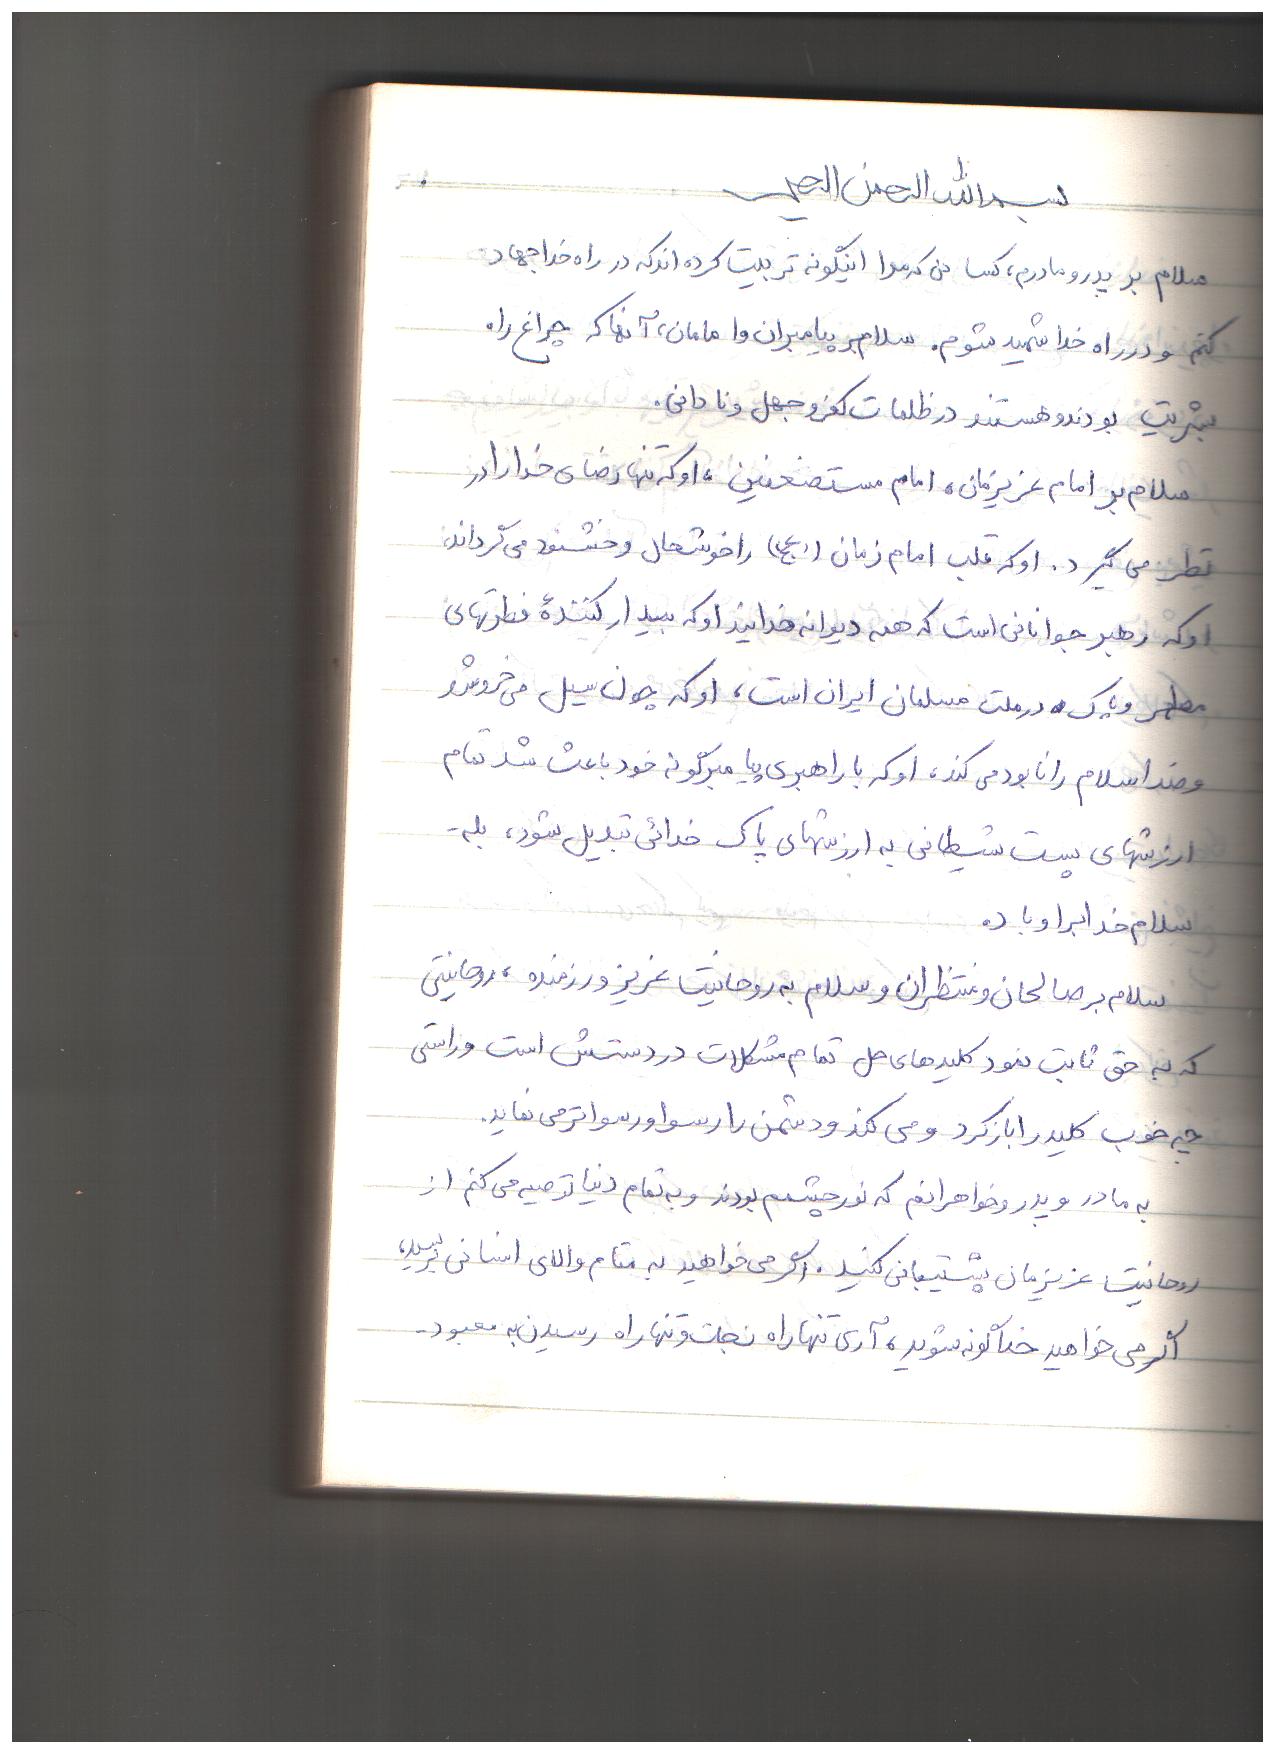 بسم الله الرحمن الرحیم
سلام بر پدر و مادرم، کسانی که مرا اینگونه تربیت کرده اند که در راه خدا جهاد
کنم و در راه خدا شهید شوم. سلام بر پیامبران و امامان، آنها که چراغ راه
بشریت بودند و هستند در ظلمات کفر و جهل و نادانی.
سلام بر امام عزیزمان، امام مستضعفین، او که تنها رضای خدا را در
نظر می گیرد. او که قلب امام زمان (عج) را خوشحال و خشنود می گرداند،
او که رهبر جوانانی است که همه دیوانه خدایند او که بیدار کنندهٔ فطرتهای
مطهر و پاک در ملت مسلمان ایران است، او که چون سیل می خروشد
و ضد اسلام را نابود می کند، او که با راهبری پیامبرگونه خود باعث شد تمام
ارزشهای پست شیطانی به ارزشهای پاک خدائی تبدیل شود، بله -
سلام خدا بر او باد.
سلام بر صالحان و منتظران و سلام به روحانیت عزیز و رزمنده، روحانیتی
که به حق ثابت نمود کلیدهای حل تمام مشکلات در دستش است و راستی
چه خوب کلید را باز کرد و می کند و دشمن را رسوا و رسواتر می نماید.
به مادر و پدر و خواهرانم که نور چشمم بودند و به تمام دنیا توصیه می کنم از
روحانیت عزیزمان پشتیبانی کنید. اگر می خواهید به مقام والای انسانی برسید،
اگر می خواهید خداگونه شوید، آری تنها راه نجات و تنها راه رسیدن به معبود -